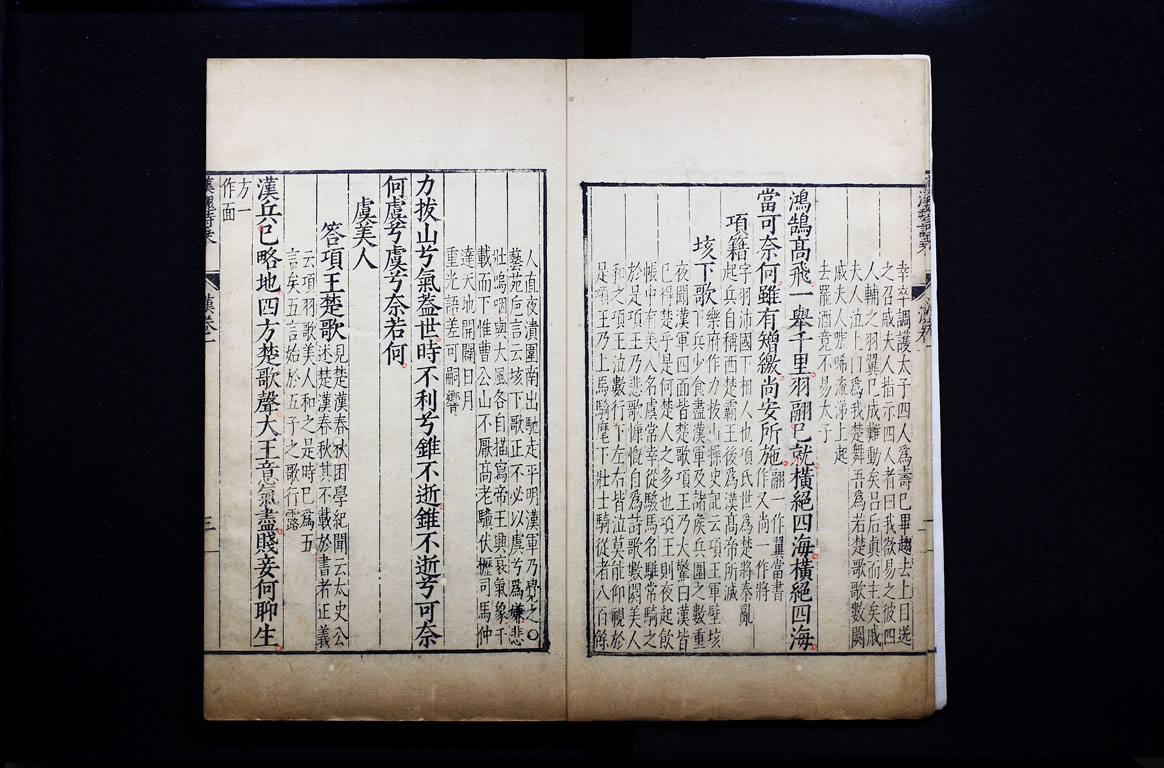 幸卒調護太子四人爲壽已畢趨去上目送
之召戚夫人指示四人者曰我欲易之彼四
人輔之羽翼已成難動矣吕后真而主矣戚
夫人泣上曰爲我楚舞吾爲若楚歌歌數闋
戚夫人嘘唏流涕上起
去罷酒竟不易太子
鴻鵠髙飛一舉千里羽翮已就横絕四海横絕四海
當可奈何雖有矰繳尚安所施翮一作翼當書
作又尚一作將
項籍字羽沛國下相人也項氏世爲楚將秦亂
起兵自稱西楚霸王後爲漢髙帝所滅
垓下歌樂府作力拔山操史記云項王軍壁垓
下兵少食盡漢軍及諸矦兵圍之數重
夜聞漢軍四面皆楚歌項王乃大驚曰漢皆
已得楚乎是何楚人之多也項王則夜起飲
帳中有美人名虞常幸從駿馬名騅常騎之
於是項王乃悲歌慷慨自爲詩歌數闋美人
和之項王泣數行下左右皆泣莫能仰視於
是項王乃上馬騎麾下壯士騎從者八百餘
漢卷一
二
人直夜潰圍南出馳走平明漢軍乃覺之〇
藝苑卮言云垓下歌正不必以虞兮爲嫌悲
壯嗚咽與大風各自描寫帝王興衰氣象千
載而下惟曹公山不厭髙老驥伏櫪司馬仲
達天地開闢日月
重光語差可嗣響
力拔山兮氣葢世時不利兮騅不逝騅不逝兮可奈
何虞兮虞兮奈若何
虞美人
答項王楚歌見楚漢春秋困學紀聞云太史公
述楚漢春秋其不載於書者正義
云項羽歌美人和之是時已爲五
言矣五言始於五子之歌行露
漢兵已略地四方楚歌聲大王意氣盡賤妾何聊生
方一
作面
漢卷一
三